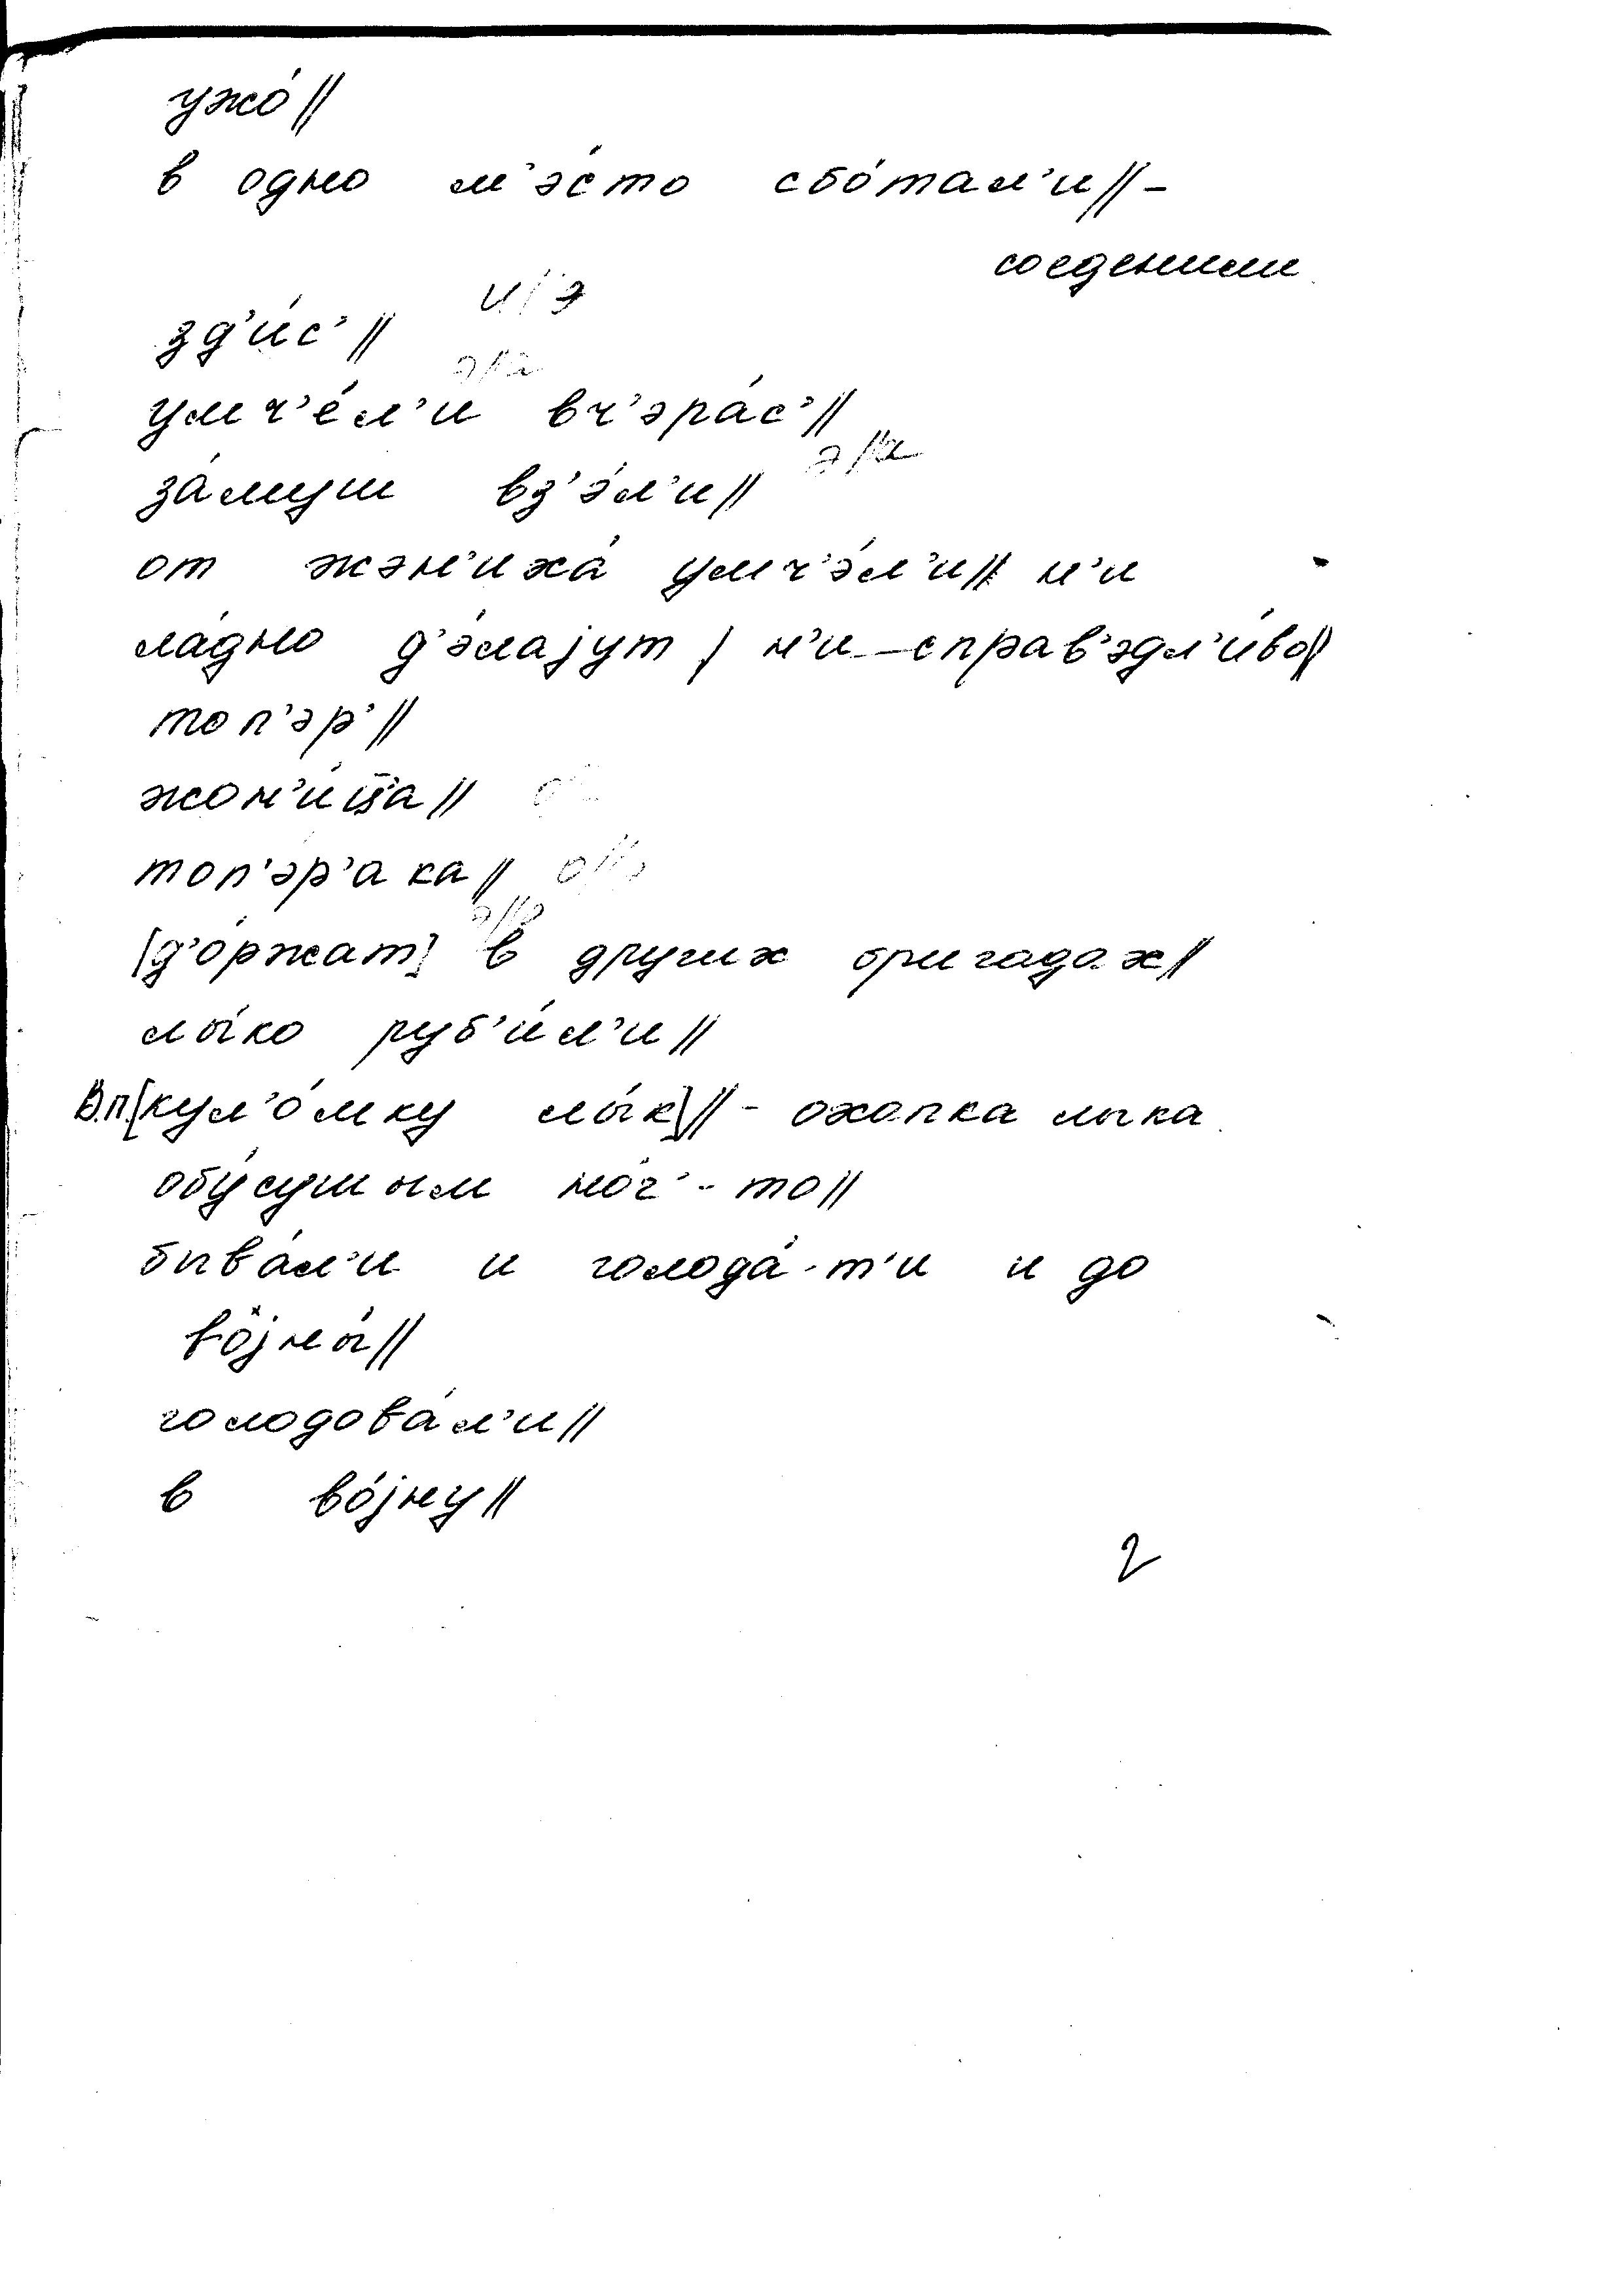 ужо́//
в одно м'э́сто сбо́тал'и// –
соеденили
и//э
зд'и́с'//
э//а
умч'е́л'и вч'эра́с'//
э//а
за́муш вз'э́л'и//
от жэн'иха́ умч'э́л'и// н'и
ла́дно д'э́лаjут / н'и справ'эдл'и́во//
топ'э́р'//
жон'и́
топ'э́р'ака// о//э
э//о
[д'о́ржат] в других бригадах//
лы́ко руб'и́л'и//
В.п.[кул'о́мку лы́к]// - охапка лыка
обу́сушым но́г'-то//
быва́л'и и голода́-т'и и до
во̂jны́//
голодова́л'и//
в во́jну//
2